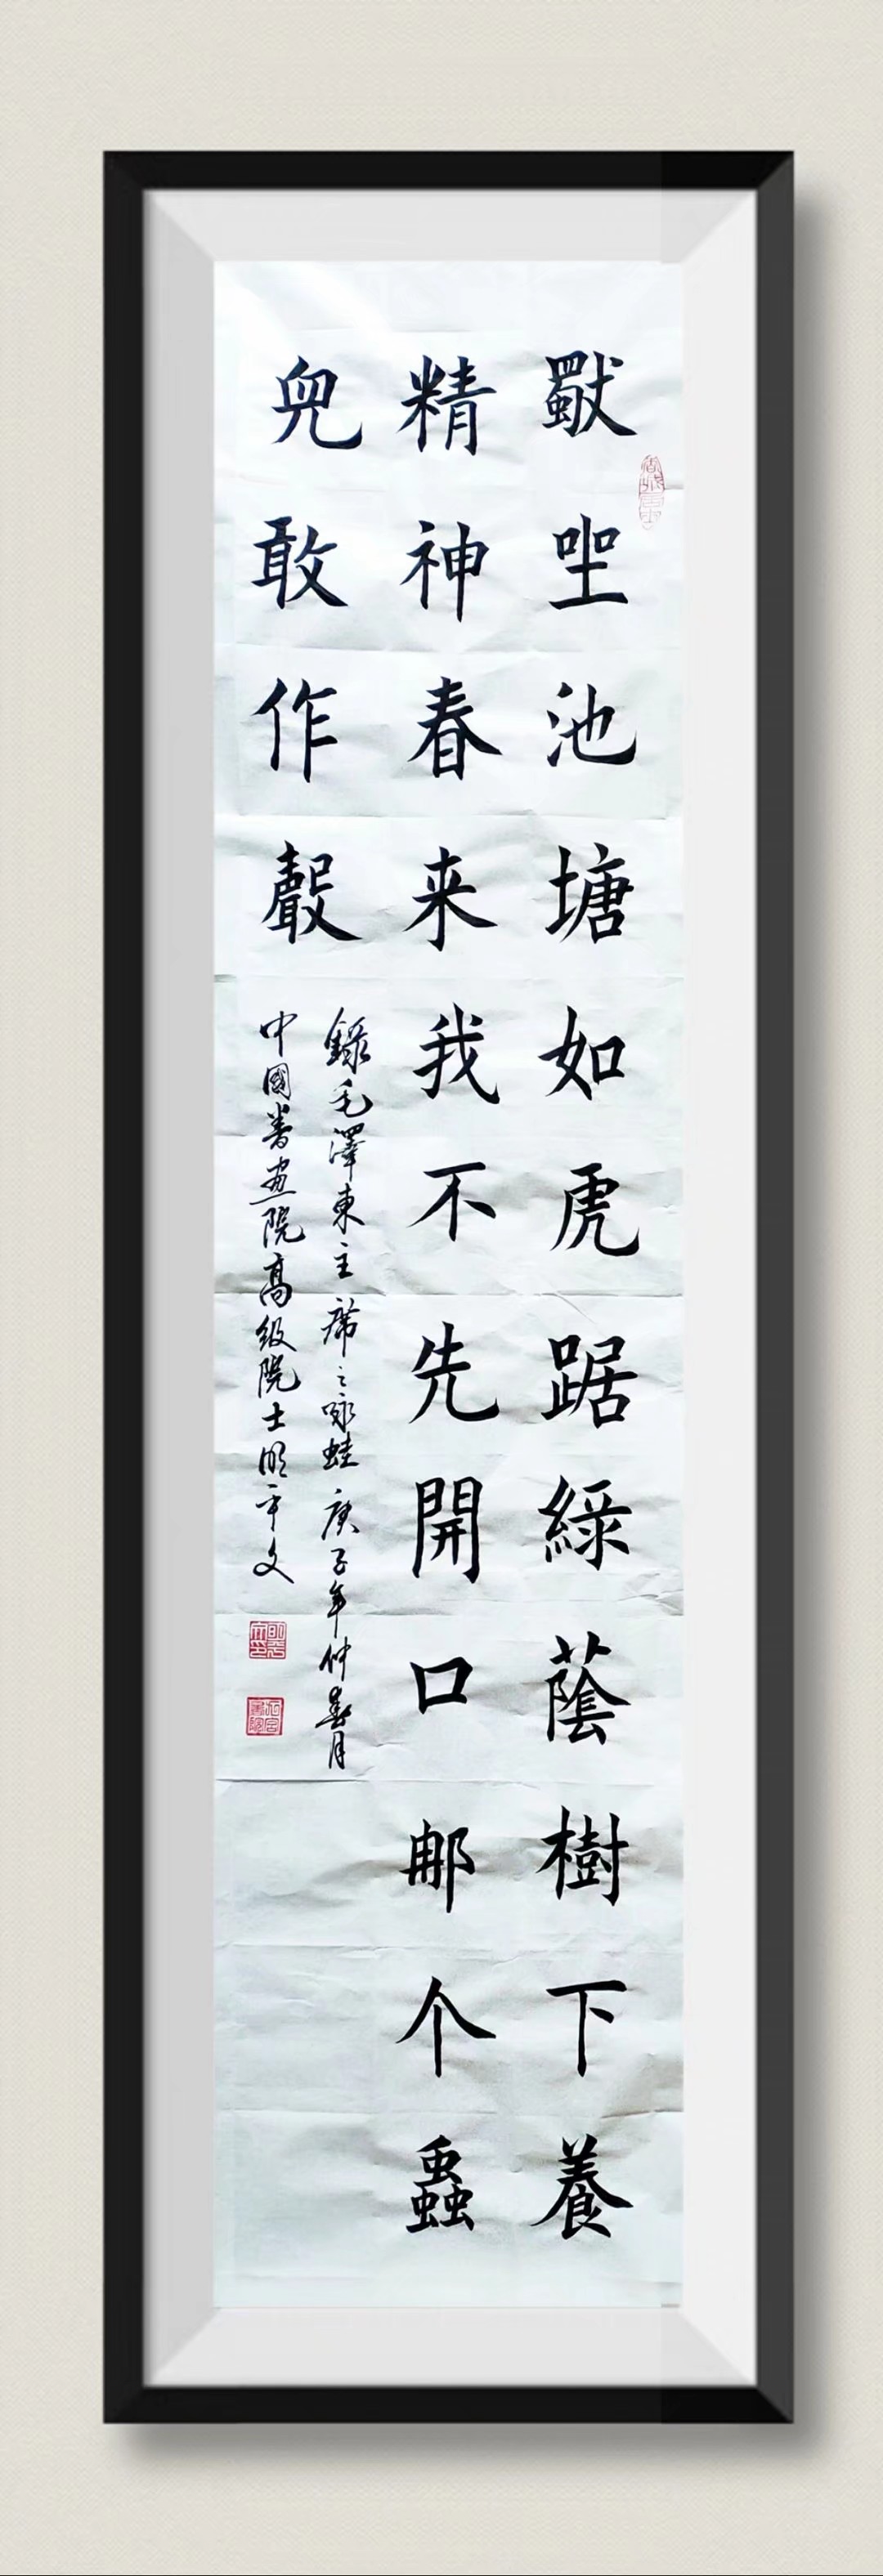 獨坐池塘如虎踞綠蔭樹下養
精神春来我不先開口那个蟲
兒敢作聲
錄毛澤東主席之咏蛙 庚子年仲春月
中國書画院高级院士明平文